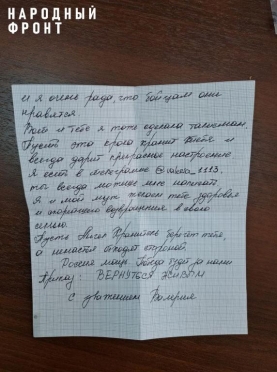 НАРОДНЫЙ
ФРОНТ
и я очень рада, что бойцам они
нравятся.
и тебе я тоже сделала талисман.
Пусть эта кроха хранит тебя и
всегда дарит прекрасное настроение
Я есть в телеграмме
ты всегда можешь мне написать
Я и мой муж желаем тебе здоровья
и хорошего возвращения в свою
семью.
Пусть Ангел Хранитель бережёт тебя
а несчастья обходят стороной.
Россия Победа будет за нами
Приказ: ВЕРНУТЬСЯ ЖИВЫМ
С уважением Валерия